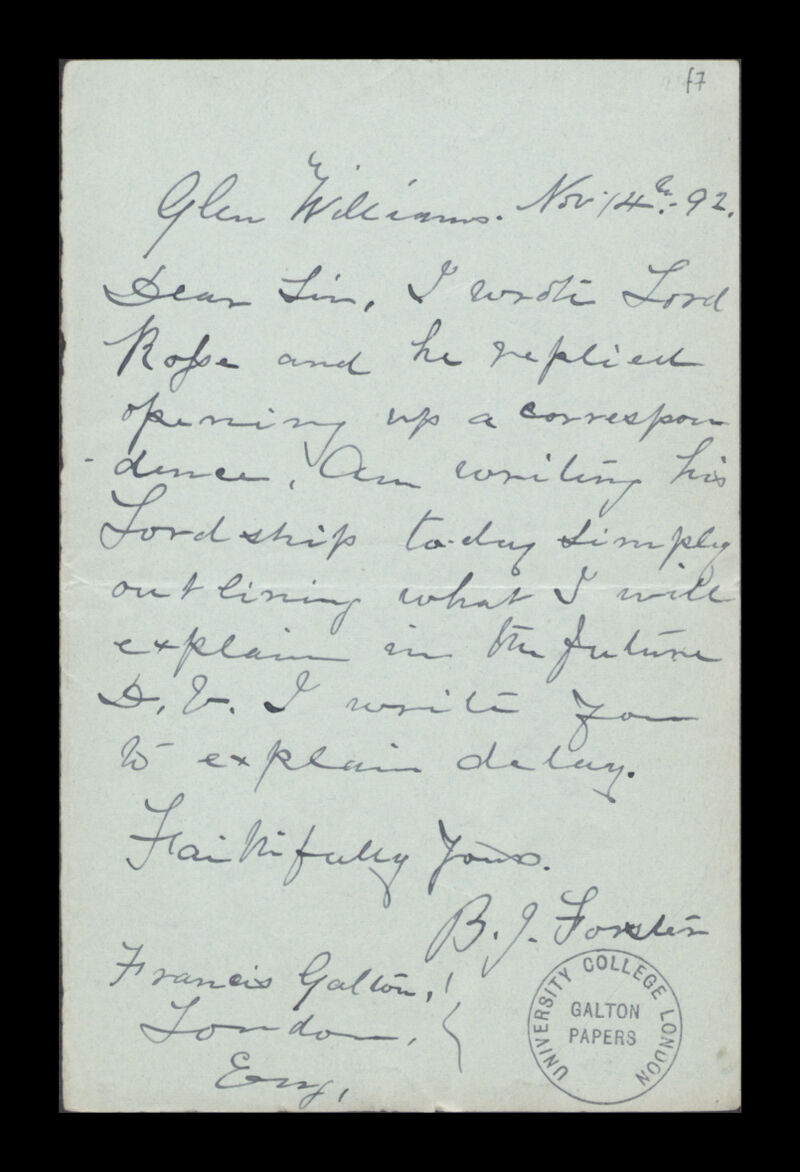 f7
Glen Williams. Nov. 14th.-92.
Dear Sir, I wrote Lord
Rosse and he replied
opening up a correspon
dence. Am writing his
Lordship to-day simply
outlining what I will
explain in the future
D.V. I write you
to explain delay.
Faithfully Yours.
B. J. Forster
Francis Galton,
London,
Eng,
UNIVERSITY COLLEGE LONDON
GALTON
PAPERS